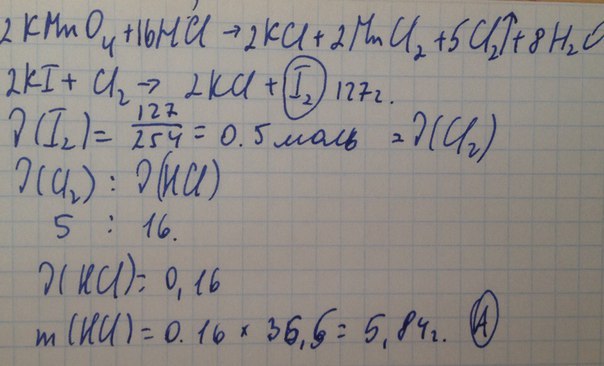 2KMnO₄ + 16HCl → 2KCl + 2MnCl₂ + 5Cl₂↑ + 8H₂O
2KI + Cl₂ → 2KCl + I₂ 127г.
ν(I₂) = 127/254 = 0.5 моль = ν(Cl₂)
ν(Cl₂) : ν(HCl)
5 : 16.
ν(HCl) = 0,16
m(HCl) = 0.16 × 36,5 = 5,84г. A